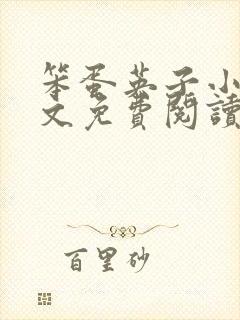 笨蛋英子小
文免費閱讀
百里砂